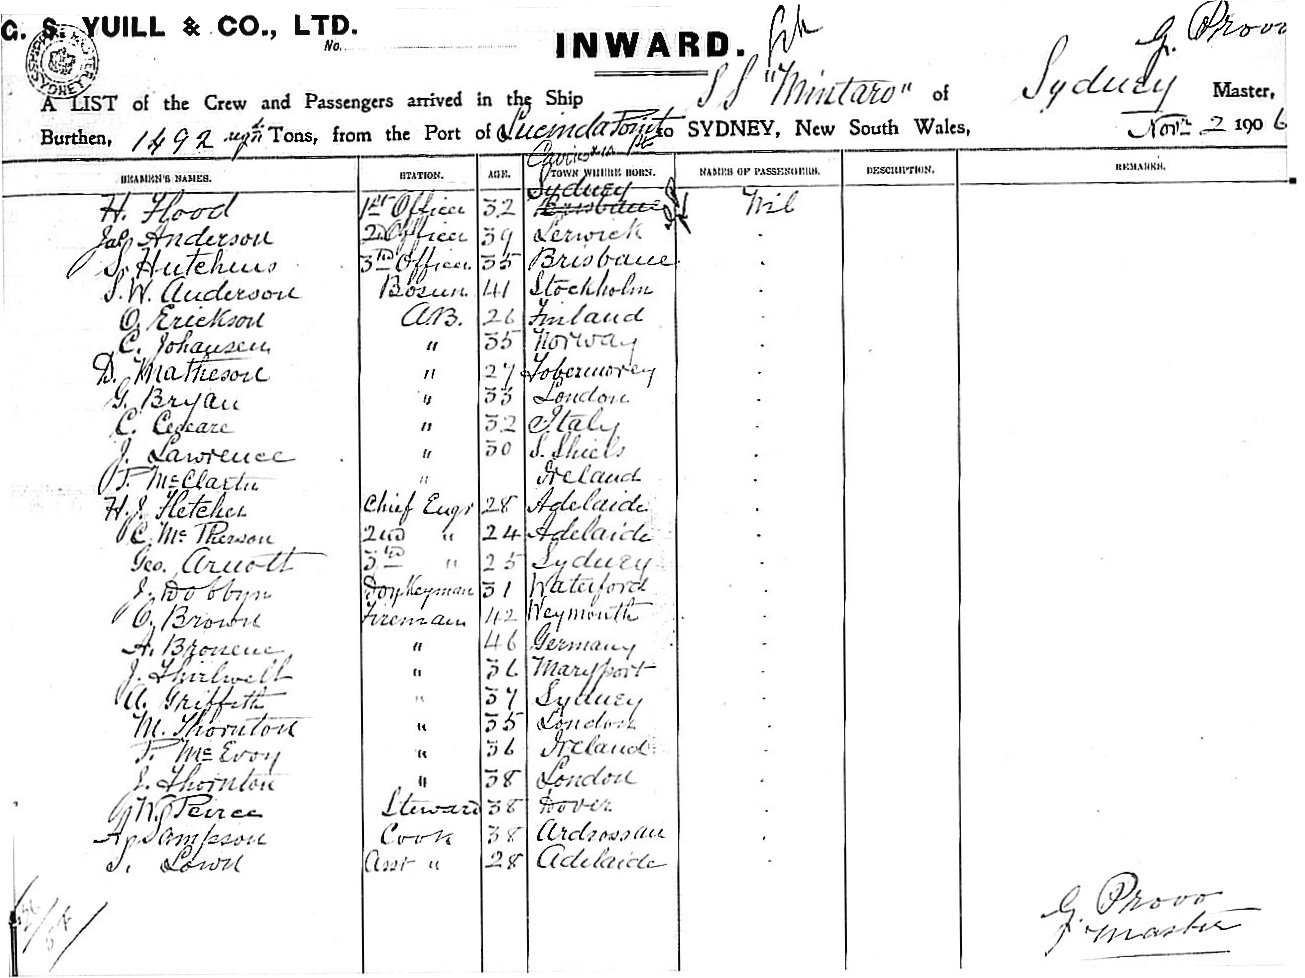 G. S. YUILL & CO., LTD.
No.
INWARD.
G. Provo
A LIST of the Crew and Passengers arrived in the Ship SS "Mintaro" of Sydney Master,
Burthen, 1492 Tons, from the Port of Lucinda Point to SYDNEY, New South Wales, Novr 2 1906
SEAMEN'S NAMES. STATION. AGE. TOWN WHERE BORN. NAMES OF PASSENGERS. DESCRIPTION. REMARKS.
Sydney
H. Flood 1st Officer 32 Brisbane Nil
Jas Anderson 2nd Officer 39 Lerwick
S. Hutchins 3rd Officer 35 Brisbane
S. W. Anderson Bosun 41 Stockholm
O. Erickson A.B. 26 Finland
C. Johansen " 35 Norway
D. Matheson " 27 Tobermorey
G. Bryan " 33 London
C. Cescare " 32 Italy
J. Lawrence " 30 S. Shiels
P. McClartn " Ireland
H. J. Fletcher Chief Engr 28 Adelaide
C. McPherson 2nd " 24 Adelaide
Geo. Arnott 3rd " 25 Sydney
J. Dobbyn Donkeyman 31 Waterford
C. Brown Fireman 42 Weymouth
A. Bronene " 46 Germany
J. Thirlwell " 36 Maryport
A. Griffith " 37 Sydney
M. Thornton " 35 London
P. McEvoy " 36 Ireland
J. Thornton " 38 London
G. W. Peirce Steward 38 Dover
A. Sampson Cook 38 Ardrossan
S. Lown Asst " 28 Adelaide
G. Provo
Master